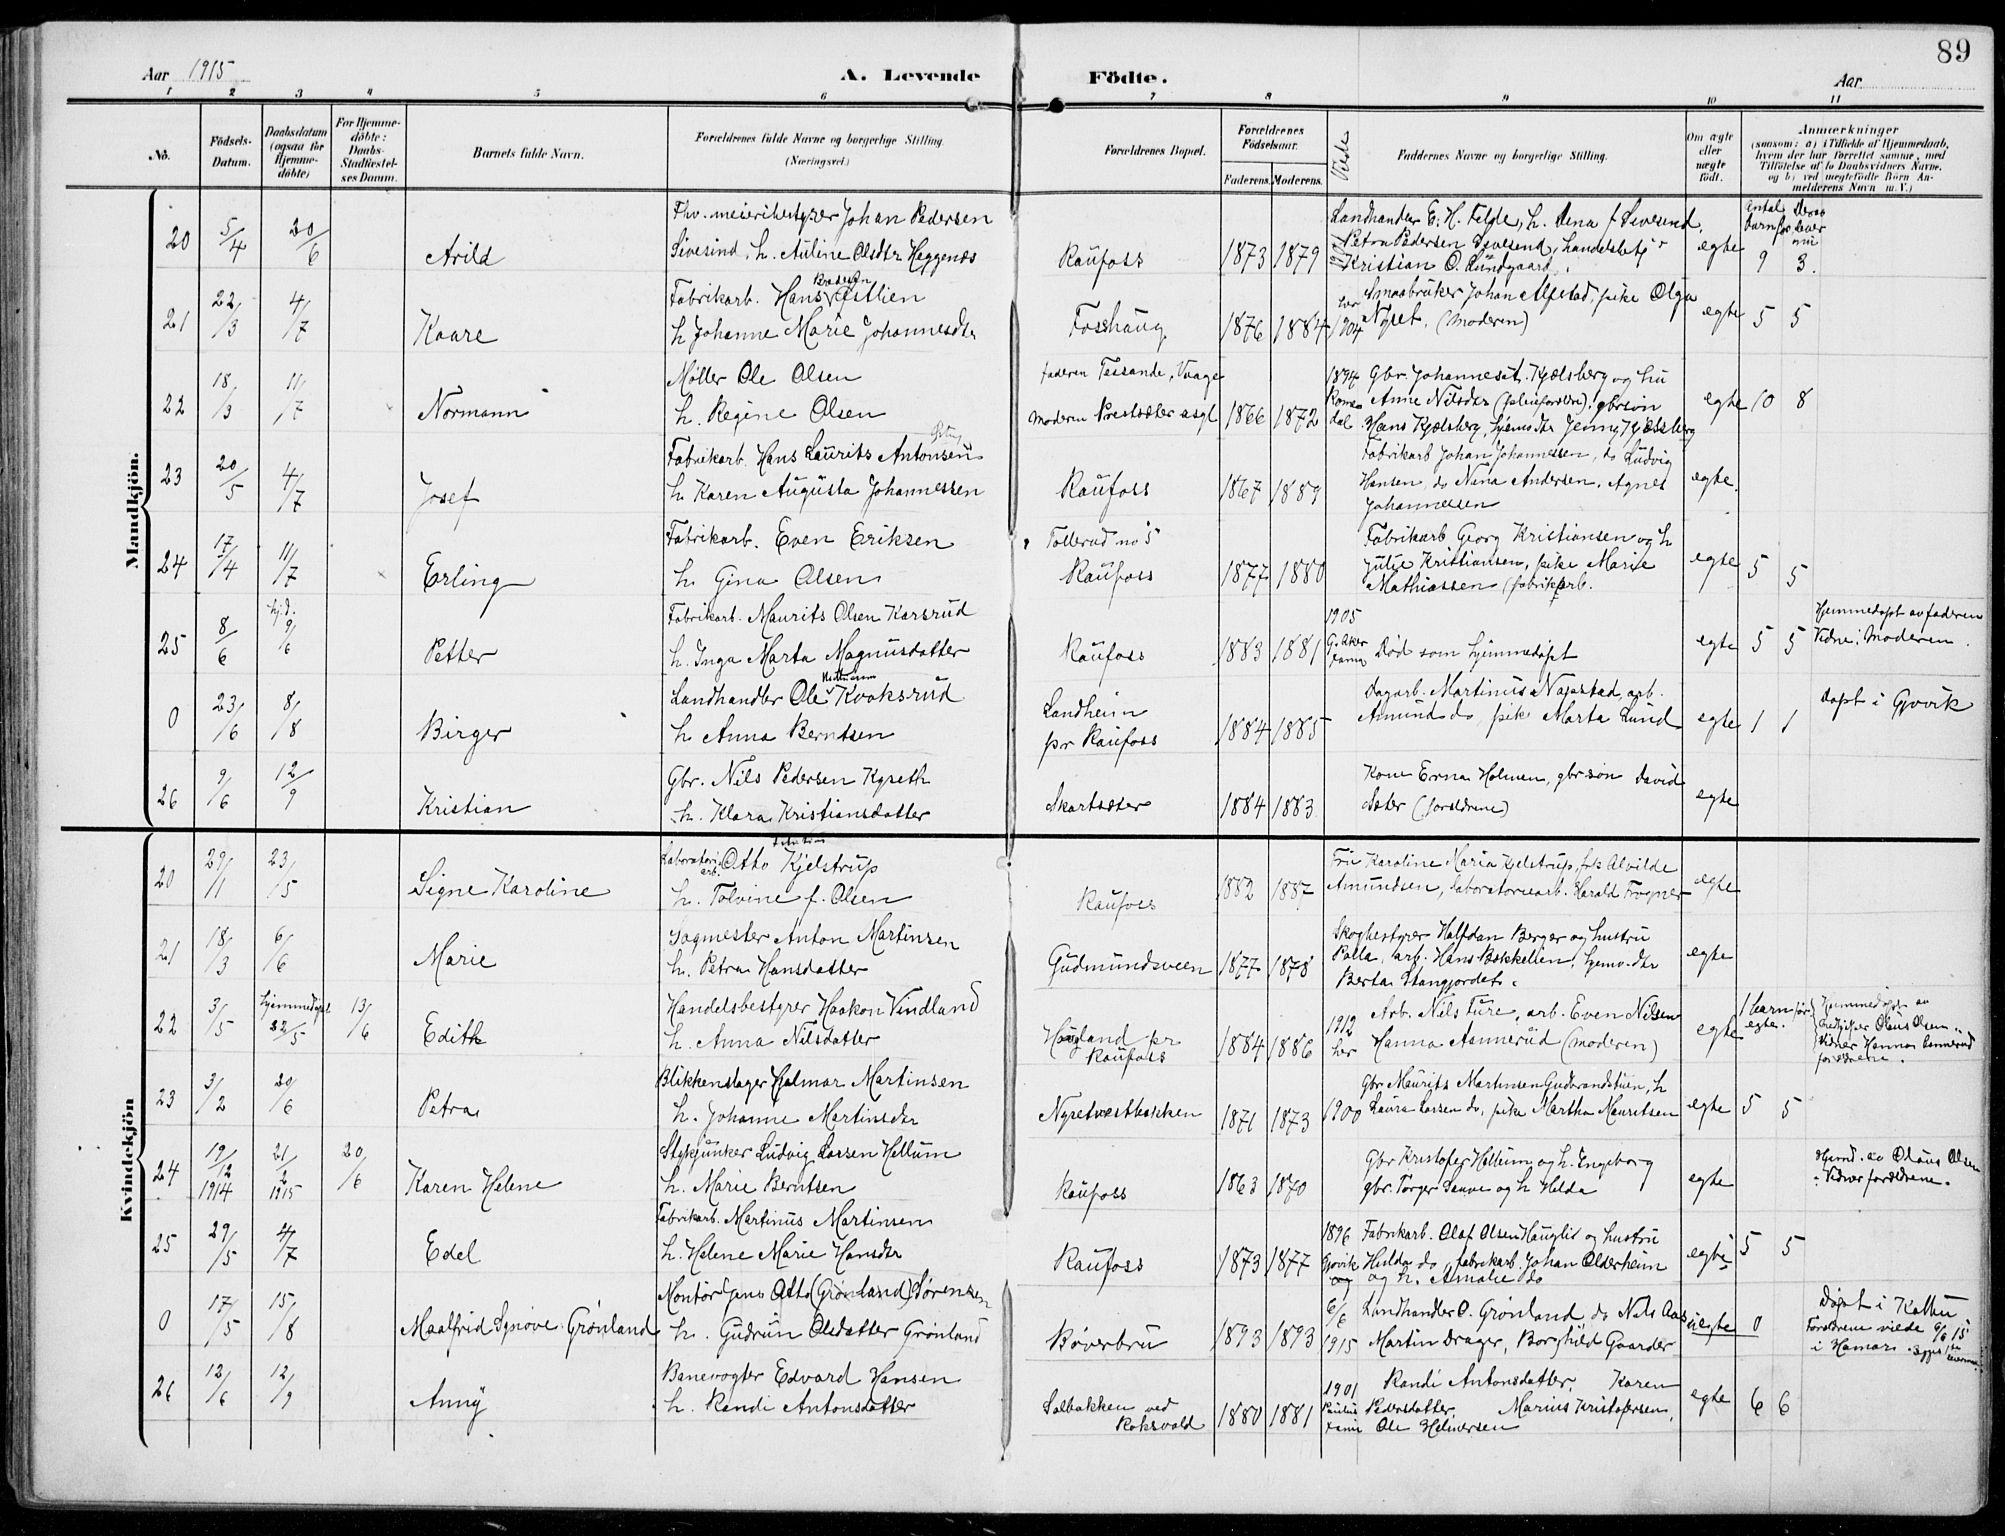 89
Aar 1915
A. Levende Födte.
Aar
1 2 3 4 5 6 7 8 9 10 11
No.
Födsels-Datum.
Daabsdatum (ogsaa for Hjemme-döbte)
For Hjemme-döbte: Daabs-Stadfæstel-ses Datum.
Barnets fulde Navn.
Forældrenes fulde Navne og borgerlige Stilling. (Næringsvei.)
Forældrenes Bopæl.
Forældrenes Födselsaar.
Faderens. Moderens.
Viede
Faddernes Navne og borgerlige Stilling.
Om ægte eller uægte födt.
Anmærkninger
(saasom: a) i Tilfælde af Hjemmedaab, hvem der har forrettet samme, med Tilföielse af to Daabsvidners Navne, og b) ved uægtefödte Börn An-melderens Navn m. V.)
Mandkjön.
Antal barn før, Derav lever nu
20 5/4 20/6 Arild
Fhv. meieribestyrer Johan Pedersen
Sivesind, h. Auline Olsdtr Heggenes
Raufoss 1873 1879 1901
Landhandler E. H. Felde, h. Dena f. Sivesind,
Petra Pedersen Sivesind, handelsbetj
Kristian O. Lundgaard.
egte 9 3.
21 22/3 4/7 Kaare
Fabrikarb. Hans Vestlien
h Johanne Marie Johannesdtr
Fosshaug 1876 1884 her 1904
Smaabruker Johan Alfstad, pike Olga
Nyset. (moderen)
egte 5 5
22 18/3 11/7 Normann
Møller Ole Olsen
h. Regine Olsen
faderen Tessande, Vaage
moderen Prestsæter asgl 1866 1872
1894 Romsdal
Gbr. Johannes Kjølsberg og hu
Anne Nilsdtr (pleieforældre), gbrsøn
Hans Kjølsberg, hjemdtr Jenny Kjølsberg
egte 10 8
23 20/5 4/7 Josef
Fabrikarb. Hans Laurits Antonsen
h Karen Augusta Johannessen
Raufoss 1867 1889
Fabrikarb Johan Johannessen, do Ludvig
Hansen, do Nina Andersen, Agnes
Johannessen
egte.
24 17/4 11/7 Erling
Fabrikarb. Even Eriksen
h. Gina Olsen
Tollerud no 5
Raufoss 1877 1880
Fabrikarb Georg Kristiansen og h
Julie Kristiansen, pike Marie
Mathiassen (fabrikarb.
egte 5 5
25 8/6 hj.d. 9/6 Petter
Fabrikarb. Maurits Olsen Karsrud
h. Inga Marta Magnusdatter
Raufoss 1883 1881
1905 G. Aker
Død som hjemmedøpt
egte 5 5
Hjemmedøpt av faderen
Vidne: Moderen.
0 23/6 8/8 Birger
Landhandler Ole Kooksrud
h Anna Berntsen
Landheim
pr Raufoss 1884 1885
Dagarb. Martinus Næsstad, arb.
Amund do, pike Marta Lund
egte 1 1
døpt i Gjøvik
26 9/6 12/9 Kristian
Gbr. Nils Pedersen Kyseth
h. Klara Kristiansdatter
Skartsæter 1884 1883
Kone Erna Holmen, gbrsøn David
Sæter (forældrene)
egte
Kvindekjön
20 29/1 23/5 Signe Karoline
Laboratoriearb. Otto Kjelstrup
h. Tolvine f. Olsen
Raufoss 1882 1887
Fru Karoline Maria Kjelstrup, frk Alvilde
Amundsen, laboratoriearb. Harald Frogner
egte
21 18/3 6/6 Marie
Sagmester Anton Martinsen
h. Petra Hansdatter
Gudmundsveen 1877 1878
Skogbestyrer Halfdan Berger og hustru
Palla, arb. Hans Bakkelien, hjemv. dtr
Berta Stangjordet.
egte
22 3/5 hjemmedøpt 22/5 13/6 Edith
Handelsbestyrer Haakon Vindland
h. Anna Nilsdatter
Haugland pr
Raufoss 1884 1886 1912 her
Arb. Nils Ture, arb. Even Nilsen
Hanna Asmerud (moderen)
egte 1 barn før egte.
Hjemmedøpt av
Olaus Olsen.
Vidner Hanna Asmerud
forældrene.
23 3/2 20/6 Petra
Blikkenslager Hjalmar Martinsen
h. Johanne Martinsdtr
Nysetvestbakken 1871 1873 1900
Gbr Maurits Martinsen Gudbrandstuen, h
Laura Larsen do, pike Martha Mauritsen
egte 5 5
24 19/12 1914 21/2 1915 20/6 Karen Helene
Stykjunker Ludvig Larsen Hellum
h. Marie Berntsen
Raufoss 1863 1870
Gbr Kristofer Hellum og h. Engeborg
gbr. Torger Sauve og h Hilda
egte
Hjemd. av Olaus Olsen
Vidner forældrene.
25 29/5 4/7 Edel
Fabrikarb. Martinus Martinsen
h. Helene Marie Hansdtr
Raufoss 1873 1877
1896 Gjøvik
Fabrikarb. Olaf Olsen Hauglie og hustru
Hulda do, fabrikarb. Johan Olderheim
og h. Amalie do
egte 5 5
0 17/5 15/8 Maalfrid Synøve Grönland
Montør Jens Otto (Grønland) Sørensen
h. Gudrun Olsdatter Grønland
Bøverbru 1893 1893 6/6 1915
Landhandler O. Grønland, do Nils Aas
Martin Drager, Borghild Gaarder
uegte 0
Døpt i Kolbu
Forældrene viede 6/6 15
i Hamar.
26 12/6 12/9 Anny
Banevogter Edvard Hansen
h. Randi Antonsdatter
Solbakken ved
Roksvold 1880 1881
1901
Randi Antonsdatter, Karen
Pedersdatter, Marius Kristofersen,
Ole Helmersen
egte 6 6